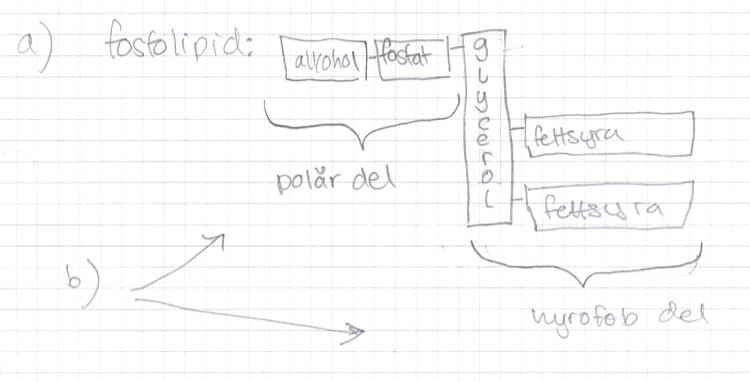 a) fosfolipid:
alkohol fosfat
glycerol
fettsyra
fettsyra
polär del
hyrofob del
b)